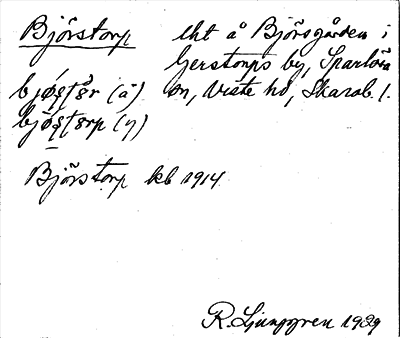 Björstorp lht å Björsgården i
Gerstorps by, Sparlösa
bjøṣṭǝr (ä) sn, Viste hd, Skarab. l.
bjøṣṭǝrp (y)
Björstorp kb 1914
R. Ljunggren 1929